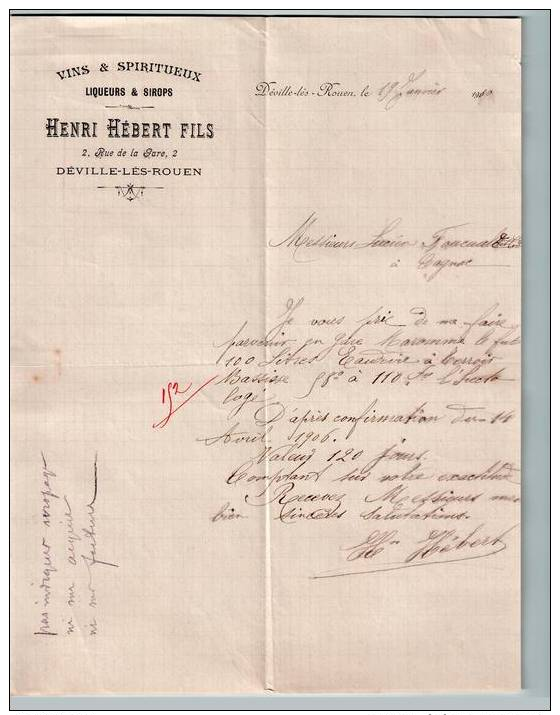 VINS & SPIRITUEUX
LIQUEURS & SIROPS
HENRI HÉBERT FILS
2, Rue de la Gare, 2
DÉVILLE-LÈS-ROUEN
Déville-lès-Rouen, le 19 Janvier 19
Messieurs Lucien Foucauld
à Cognac
Je vous prie de me faire
parvenir en gare Maromme le fut
100 Litres Eaudevie à terroir
58° à 110 l'Hecto
logé
D'après confirmation du 14
Avril 1906.
Valeur 120 jours.
Comptant sur votre exactitude
Recevez Messieurs mes
bien sincères salutations.
Hri Hébert
152
pas indiquer
ni sur acquit
ni sur facture